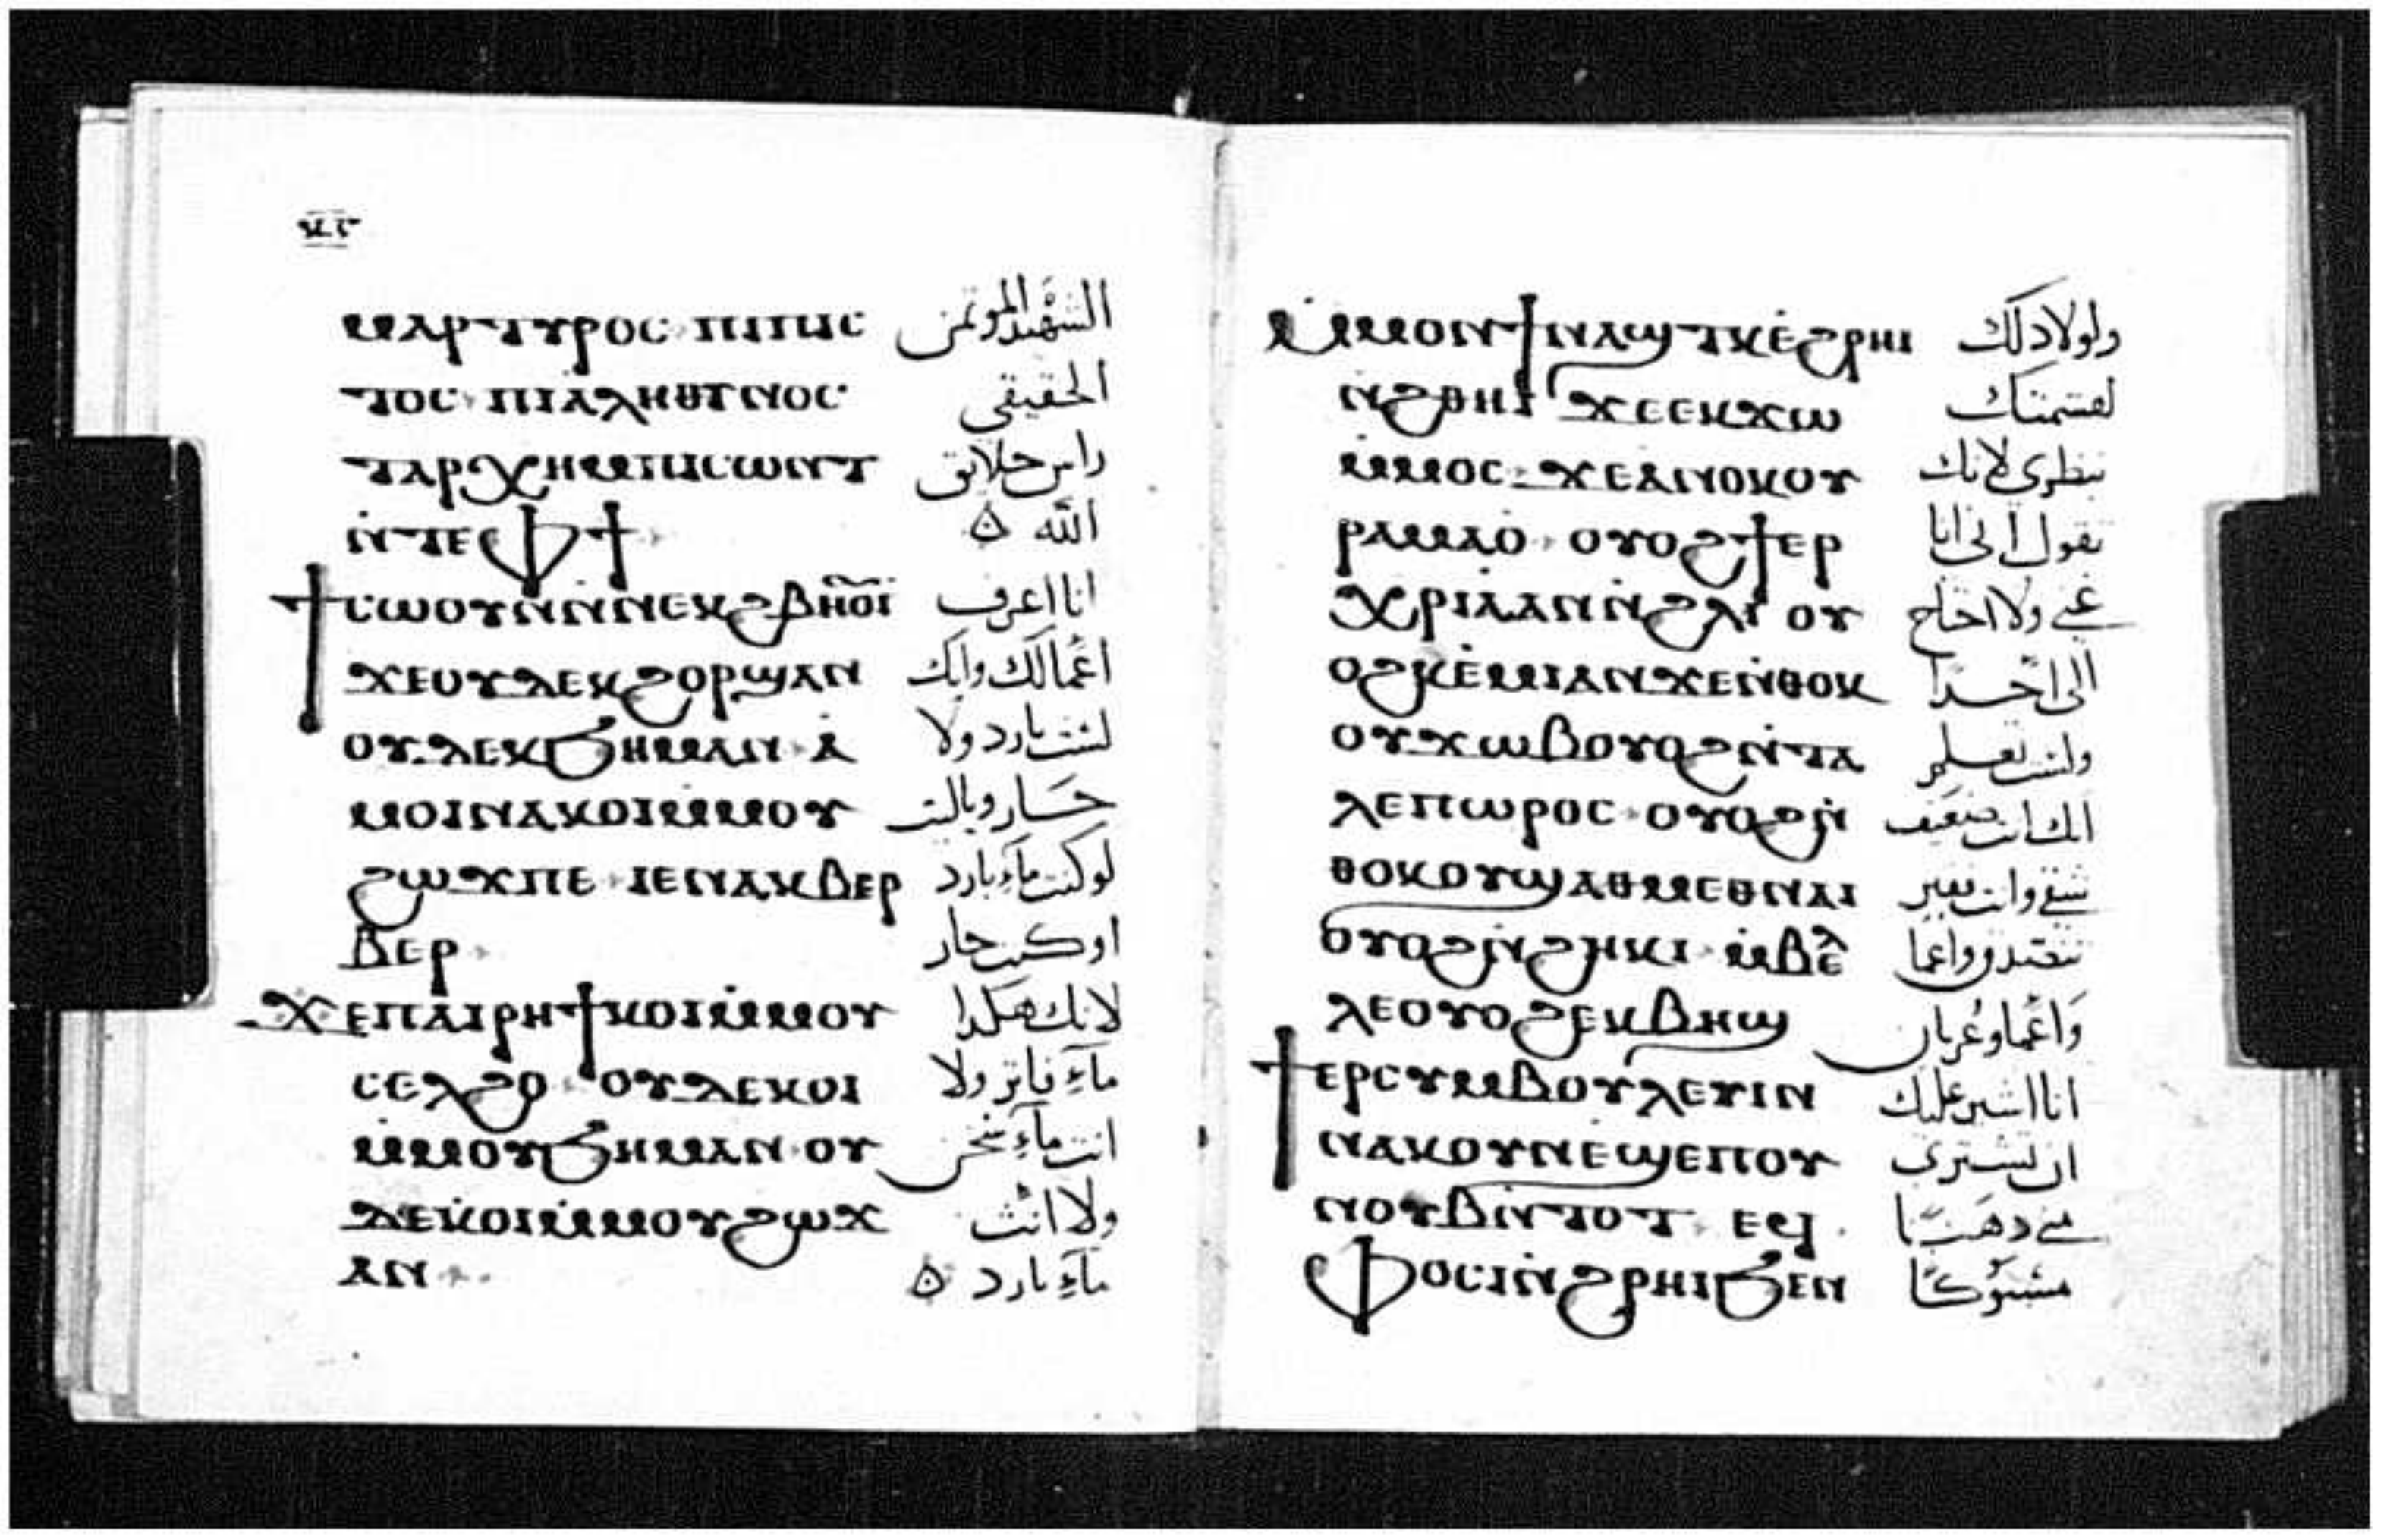 ⲕⲅ
ⲙⲁⲣⲧⲩⲣⲟⲥ ⲡⲓⲡⲓⲥ الشهيد الموتمن
ⲧⲟⲥ ⲡⲓⲁⲗⲏⲑⲓⲛⲟⲥ الحقيقي
ⲧⲁⲣⲭⲏⲙⲡⲓⲥⲱⲛⲧ راس خلايق
ⲛ̀ⲧⲉⲫϯ الله
ϯⲥⲱⲟⲩⲛⲛ̀ⲛⲉⲕϩⲃⲏⲟⲩⲓ̀ انا اعرف
ϫⲉⲟⲩⲇⲉⲕϩⲟⲣϣⲁⲛ اعمالك وانك
ⲟⲩⲇⲉⲕϧⲏⲙⲁⲛ ⲁ̀ لست بارد ولا
ⲙⲟⲓⲛⲁⲕⲟⲓⲙ̀ⲙⲟⲩ حار وياليت
ϩⲱϫⲡⲉ ⲓⲉⲛⲁⲕⲃⲉⲣ لو كنت ماء بارد
ⲃⲉⲣ او كنت حار
ϫⲉⲡⲁⲓⲣⲏϯⲕⲟⲓⲙ̀ⲙⲟⲩ لانك هكدا
ⲥⲉⲗϩⲟ ⲟⲩⲇⲉⲕⲟⲓ ماء فاتر ولا
ⲙ̀ⲙⲟⲩϧⲏⲙⲁⲛ ⲟⲩ انت ماء سخن
ⲇⲉⲕⲟⲓⲙ̀ⲙⲟⲩϩⲱϫ ولا انت
ⲁⲛ ماء بارد
ⲙ̀ⲙⲟⲛϯⲛⲁϣⲧⲕⲉ̀ϩⲣⲏⲓ ولولا دلك
ⲛ̀ϩⲑⲏⲓ ϫⲉⲉⲕϫⲱ
ⲙ̀ⲙⲟⲥ ϫⲉⲁⲛⲟⲕⲟⲩ لانك
ⲣⲁⲙⲁⲟ̀ ⲟⲩⲟϩϯⲉⲣ تقول انى انا
ⲭⲣⲓⲁⲁⲛⲛ̀ϩⲗⲓ ⲟⲩ غني ولا احتاج
ⲟϩⲕⲉ̀ⲙⲓⲁⲛϫⲉⲛ̀ⲑⲟⲕ الى احدا
ⲟⲩϫⲱⲃⲟⲩⲟϩⲛ̀ⲧⲁ ولست تعلم
ⲗⲉⲡⲱⲣⲟⲥ ⲟⲩⲟϩⲛ̀ انك انت ضعيف
ⲑⲟⲕⲟⲩϣⲁⲑⲙⲉⲑⲛⲁⲓ شقي وانت فقير
ⲟⲩⲟϩⲛ̀ϩⲏⲕⲓ ⲙ̀ⲃⲉⲗ
ⲗⲉⲟⲩⲟϩⲉⲕⲃⲏϣ واعما وعريان
ϯⲉⲣⲥⲩⲙⲃⲟⲩⲗⲉⲩⲓⲛ انا اشير عليك
ⲛⲁⲕⲟⲩⲛⲉ̀ϣⲉⲡⲟⲩ ان تشتري
ⲛⲟⲩⲃⲛ̀ⲧⲟⲧ ⲉϥ مني دهبا
ⲫⲟⲥⲓⲛ̀ϩⲣⲏⲓϧⲉⲛ مسبوكا